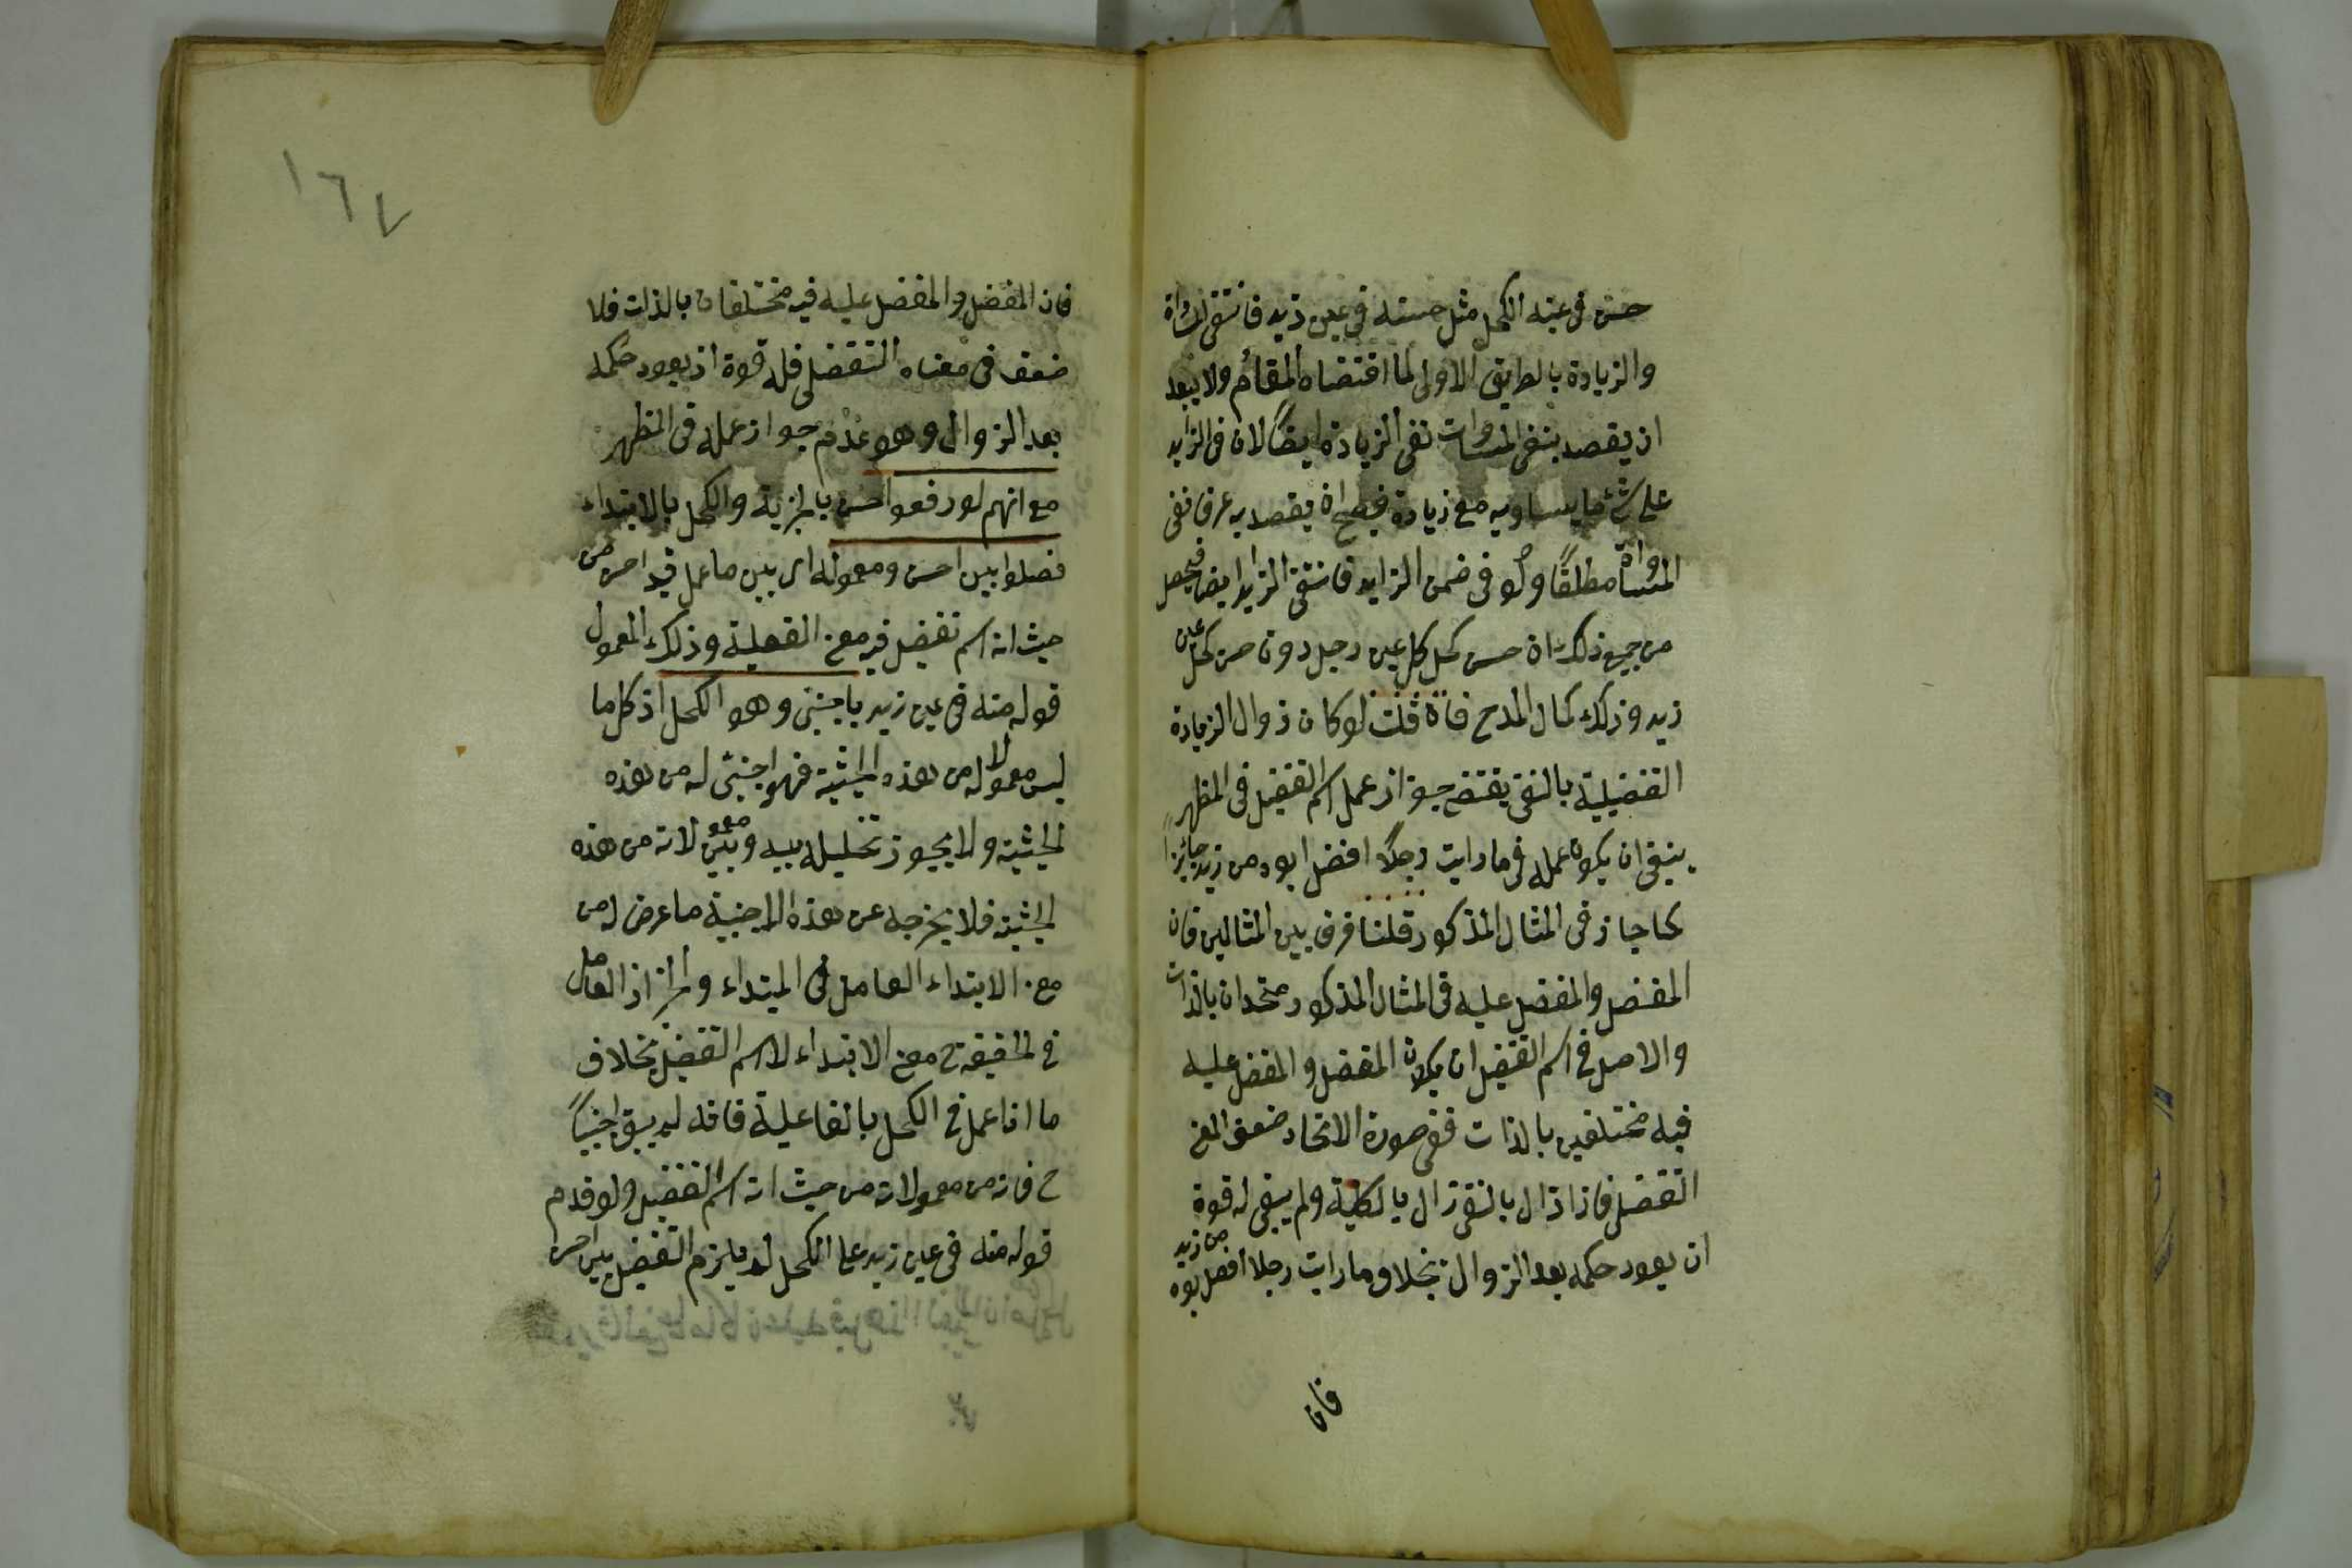 حسن فى عينه الكحل مثل حسنه فى عين زيد فانتفى المساواة
والزيادة بالطريق الاولى لما اقتضاه المقام ولا يبعد
ان يقصد بنفى المساوات نفى الزيادة ايضًا لان فى الزايد
على شئ ما يساويه مع زيادة فيصح ان يقصد به عرفا نفى
المساواة مطلقًا ولو فى ضمن الزايد فانتفى الزايد ايضا فيحصل
من جميع ذلك ان حسن كحل كل عين رجل دون حسن كحل عين
زيد وذلك كمال المدح فان قلت لو كان زوال الزيادة
التفضيلية بالنفى يقتضى جواز عمل اسم التفضيل فى المظهر
ينبغى ان يكون عمله فى ما رايت رجلًا افضل ابوه من زيد جايزًا
كما جاز فى المثال المذكور قلنا فرق بين المثالين فان
المفضل والمفضل عليه فى المثال المذكور متحدان بالذات
والاصل فى اسم التفضيل ان يكون المفضل والمفضل عليه
فيه مختلفين بالذات ففى صورة الاتحاد ضعف المعنى
التفضلى فاذا زال بالنفى زال بالكلية ولم يبقى له قوة
ان يعود حكمه بعد الزوال بخلاف ما رايت رجلا افضل ابوه من زيد
فان
١٦٧
فان المفضل والمفضل عليه فيه مختلفان بالذات فلا
ضعف فى معناه التفضلى فله قوة ان يعود حكمه
بعد الزوال وهو عدم جواز عمله فى المظهر
مع انهم لو رفعوا احسن بالخبرية والكحل بالابتداء
فصلوا بين احسن ومعموله اى بين ما عمل فيه احسن من
حيث انه اسم تفضيل فيه معنى الفعلية وذلك المعمول
قوله منه فى عين زيد باجنبى وهو الكحل اذ كل ما
ليس معمولا له من هذه الحيثية فهو اجنبى له من هذه
الحيثية ولا يجوز تخليله بينه وبين معموله لانه من هذه
الحيثية فلا يخرجه عن هذه الاجنبية ما عرض له من
معنى الابتداء العامل فى المبتداء والخبر اذ العامل
فى الحقيقة ح معنى الابتداء لا اسم التفضيل بخلاف
ما اذا عمل فى الكحل بالفاعلية فانه لم يبق اجنبيًا
ح فانه من معمولاته من حيث انه اسم التفضيل ولو قدم
قوله منه فى عين زيد على الكحل لم يلزم التفضيل بين احسن